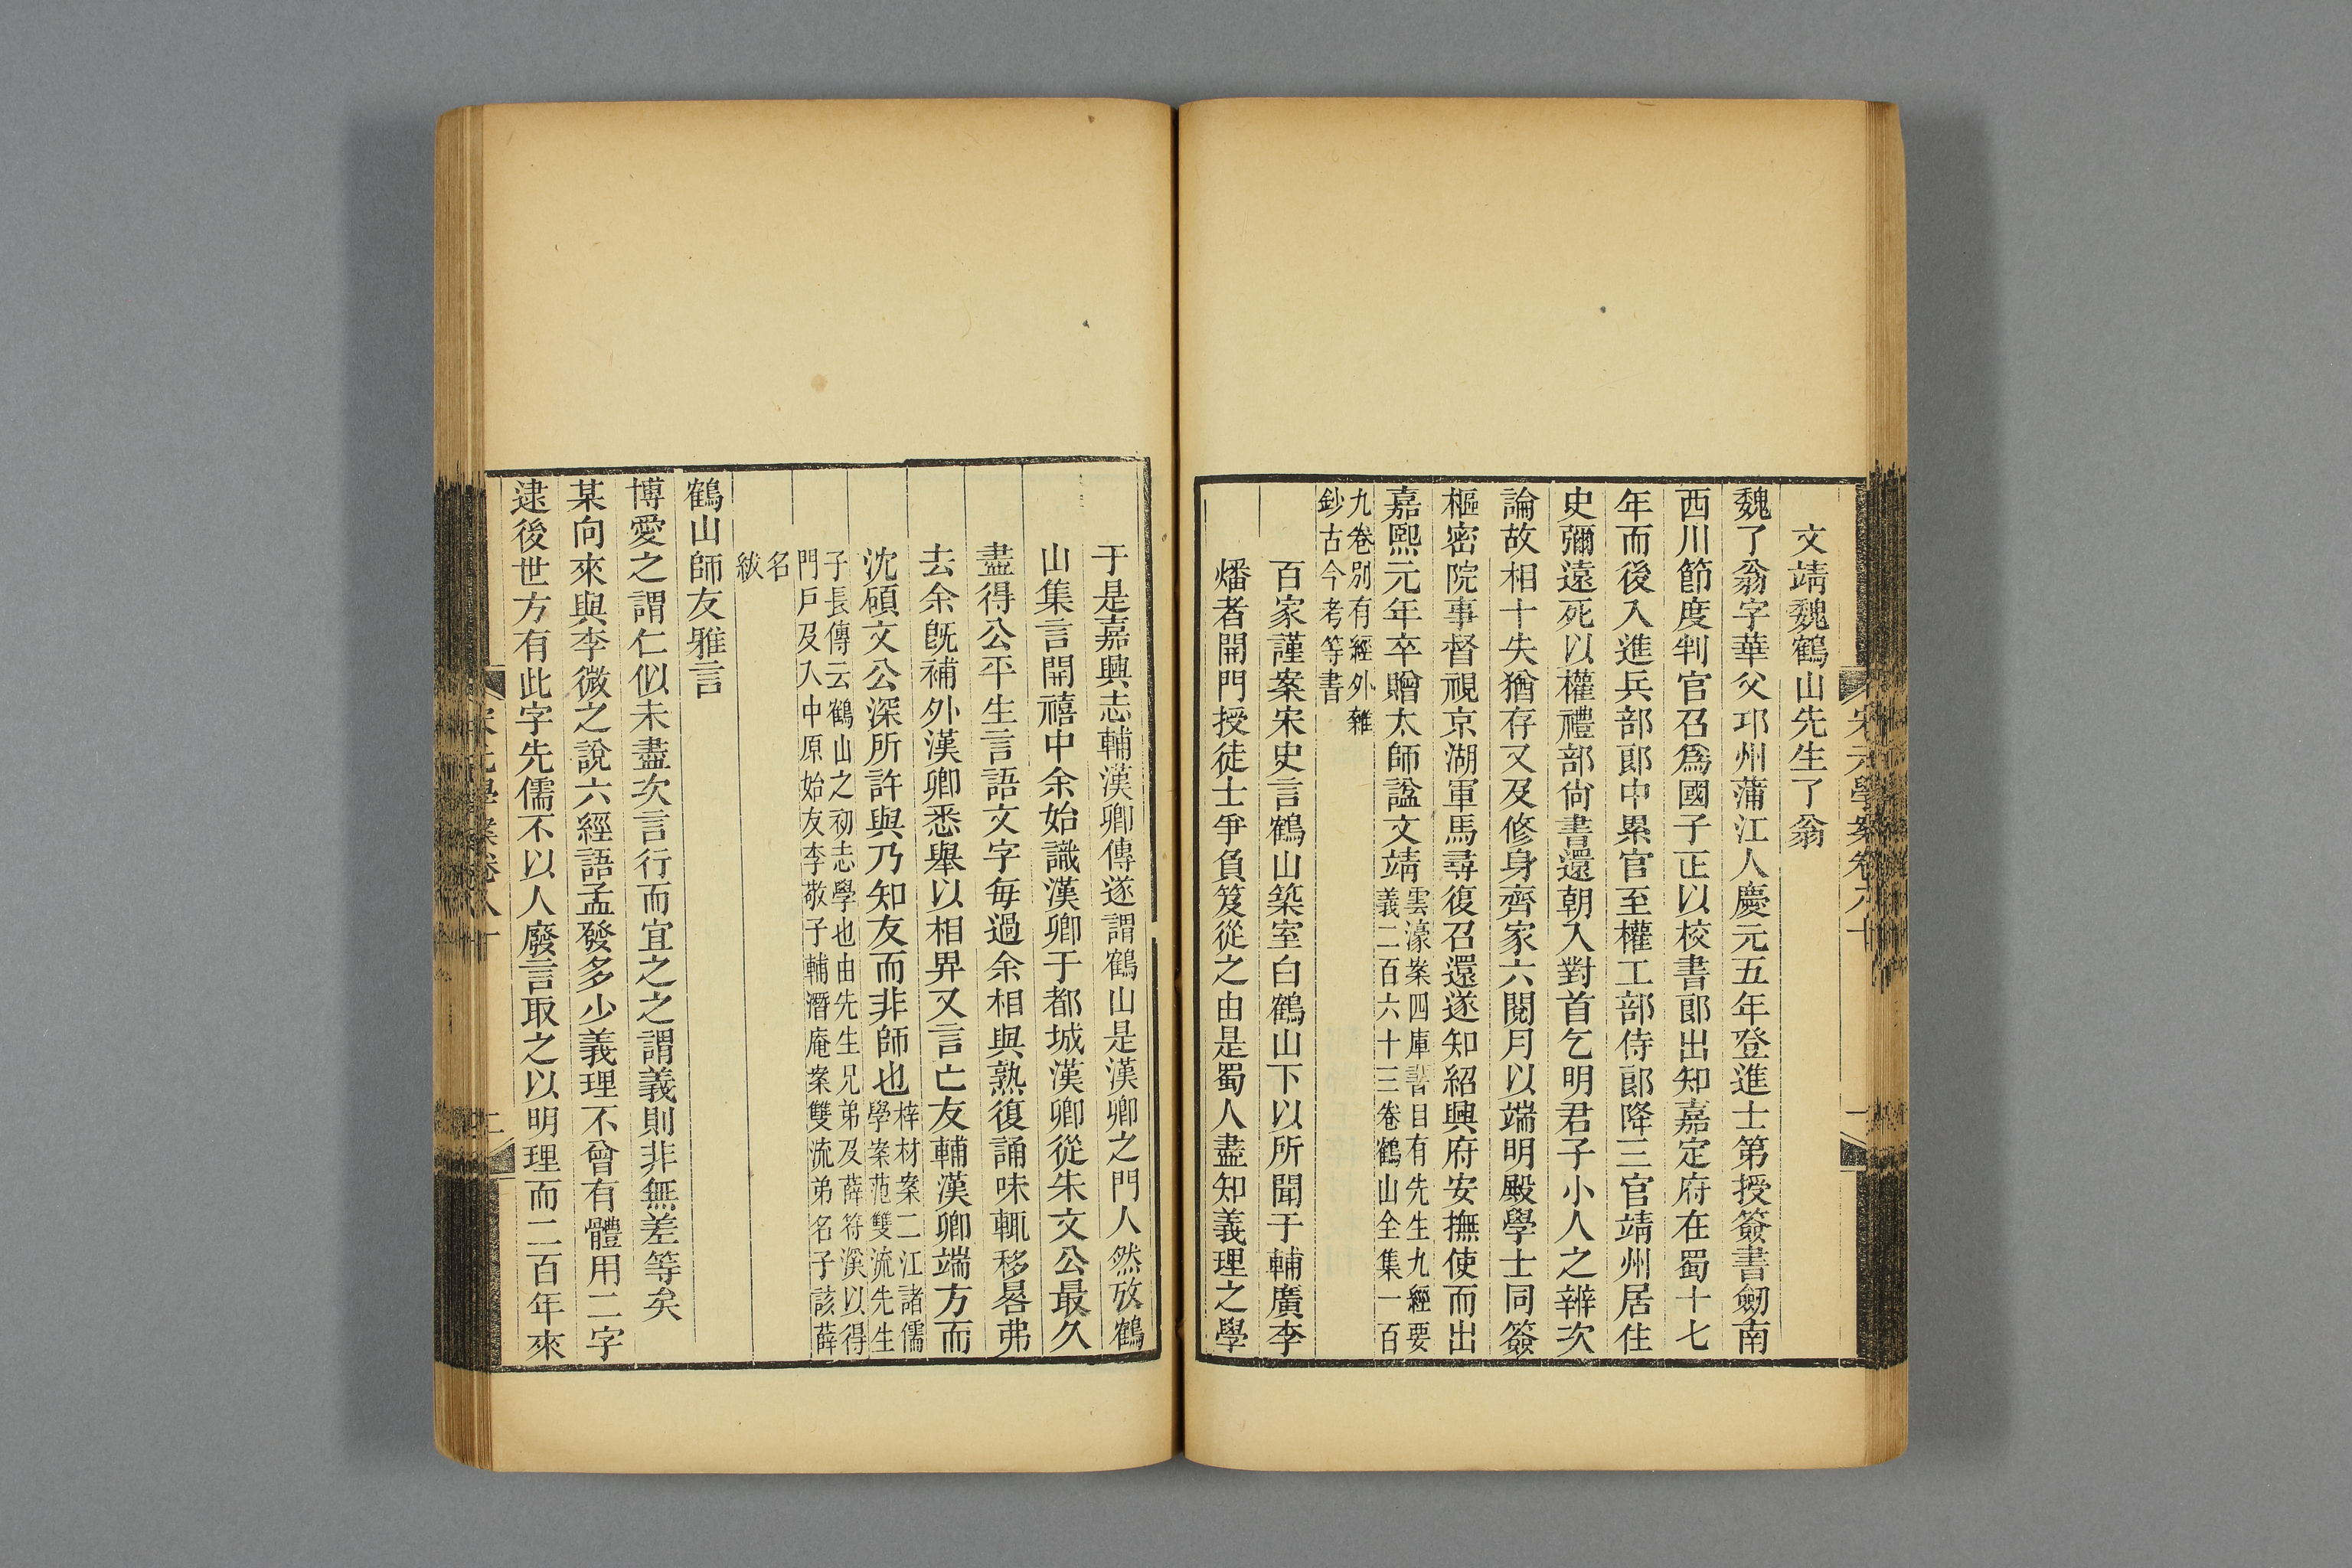 文靖魏鶴山先生了翁
魏了翁字華父邛州蒲江人慶元五年登進士第授簽書劒南
西川節度判官召爲國子正以校書郎出知嘉定府在蜀十七
年而後入進兵部郎中累官至權工部侍郎降三官靖州居住
史彌遠死以權禮部尙書還朝入對首乞明君子小人之辨次
論故相十失猶存又及修身齊家六閱月以端明殿學士同簽
樞密院事督視京湖軍馬尋復召還遂知紹興府安撫使而出
嘉熙元年卒贈太師諡文靖雲濠案四庫書目有先生九經要
義二百六十三卷鶴山全集一百
九卷別有經外雜
鈔古今考等書
百家謹案宋史言鶴山築室白鶴山下以所聞于輔廣李
燔者開門授徒士爭負笈從之由是蜀人盡知義理之學
于是嘉興志輔漢卿傳遂謂鶴山是漢卿之門人然攷鶴
山集言開禧中余始識漢卿于都城漢卿從朱文公最久
盡得公平生言語文字每過余相與熟復誦味輒移晷弗
去余旣補外漢卿悉舉以相畀又言亡友輔漢卿端方而
沈碩文公深所許與乃知友而非師也梓材案二江諸儒
學案范雙流先生
子長傳云鶴山之初志學也由先生兄弟及薛符溪以得
門戶及入中原始友李敬子輔潛庵案雙流弟名子該薛
名
紱
鶴山師友雅言
博愛之謂仁似未盡次言行而宜之之謂義則非無差等矣
某向來與李微之說六經語孟發多少義理不曾有體用二字
逮後世方有此字先儒不以人廢言取之以明理而二百年來
宋元學案卷八十
一
二